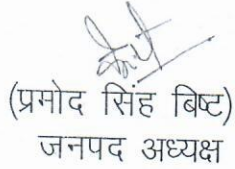 (प्रमोद सिंह बिष्ट)
जनपद अध्यक्ष